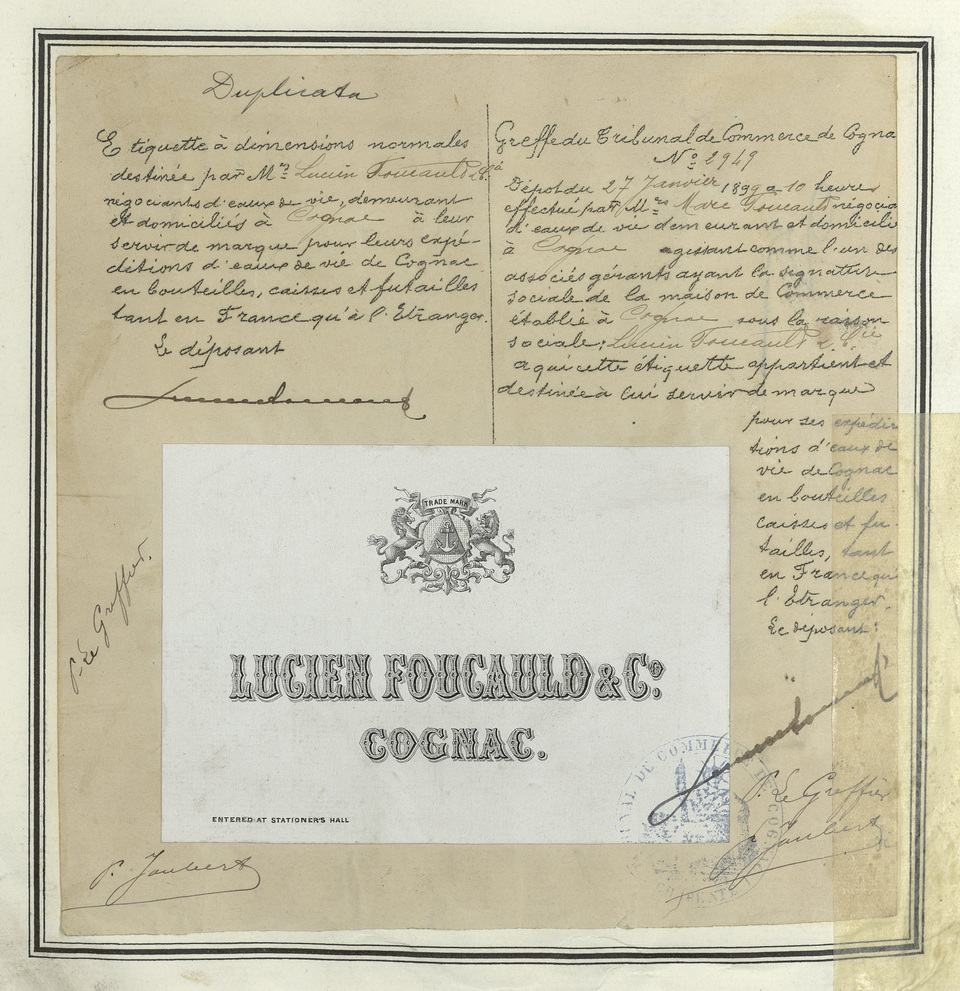 Duplicata
Etiquette à dimensions normales
destinée par M.rs Lucien Foucauld & Cie
négociants d'eaux de vie, demeurant
et domiciliés à Cognac à leur
servir de marque pour leurs expé-
ditions d'eaux de vie de Cognac
en bouteilles, caisses et futailles
tant en France qu'à l'Etranger.
Le déposant
Greffe du Tribunal de Commerce de Cogna
No 2949
Dépôt du 27 Janvier 1899 a 10 heures
effectué par M. Marc Foucauld négocia
d'eaux de vie demeurant et domicilié
à Cognac agissant comme l'un des
associés gérants ayant la signature
sociale de la maison de Commerce
établie à Cognac sous la raison
sociale: Lucien Foucauld & Cie
a qui cette étiquette appartient et
destinée à lui servir de marque
pour ses expédi-
tions d'eaux de
vie de Cognac
en bouteilles
caisses et fu-
tailles, tant
en France qu'à
l'Etranger.
Le déposant:
P. Le Greffier.
TRADE MARK
LUCIEN FOUCAULD & Co.
COGNAC.
ENTERED AT STATIONER'S HALL
DU COMMERCE DE COGN
P. Le Greffier
P. Joubert
P. Joubert